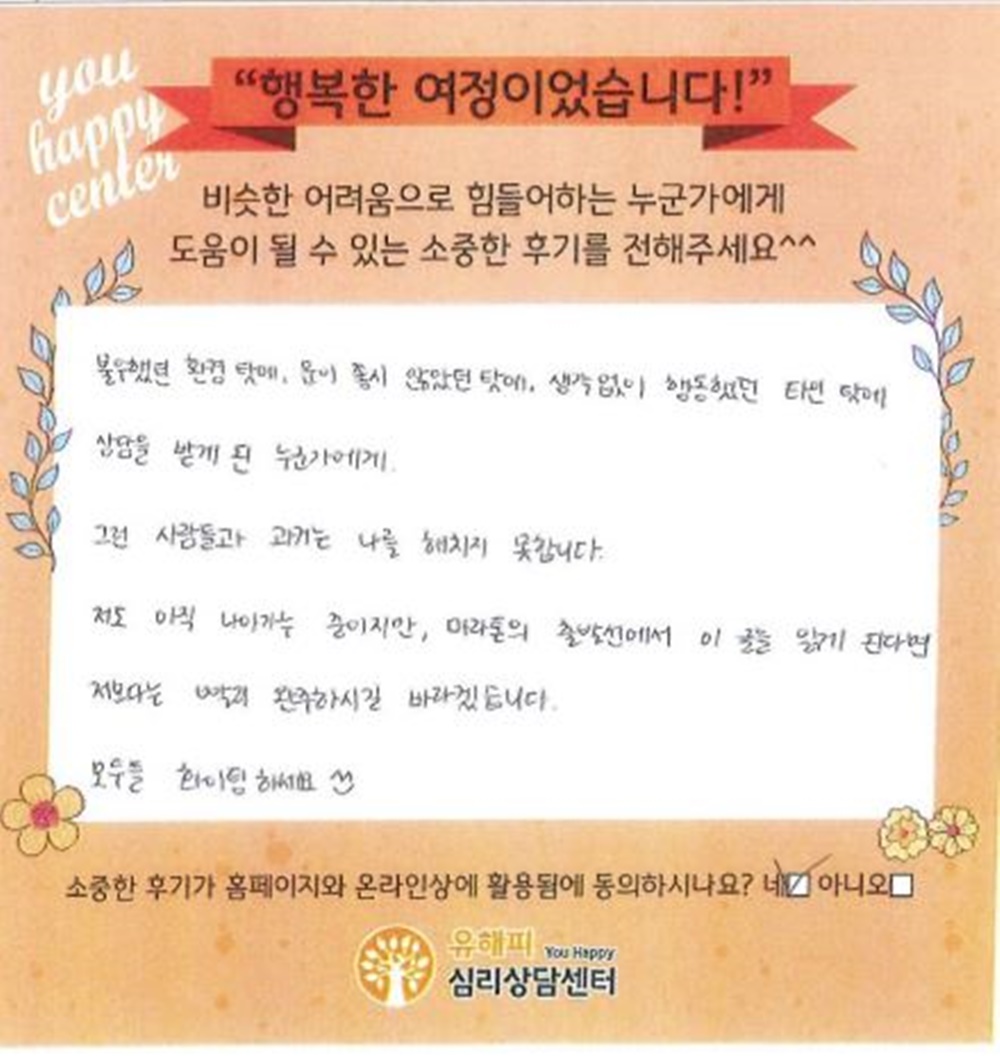 you
happy
center
“행복한 여정이었습니다!”
비슷한 어려움으로 힘들어하는 누군가에게
도움이 될 수 있는 소중한 후기를 전해주세요^^
불우했던 환경 탓에, 운이 좋지 않았던 탓에, 생각없이 행동했던 타인 탓에
상담을 받게 된 누군가에게.
그런 사람들과 과거는 나를 해치지 못합니다.
저도 아직 나아가는 중이지만, 마라톤의 출발선에서 이 글을 읽게 된다면
저보다는 빨리 완주하시길 바라겠습니다.
모두들 화이팅 하세요 ^^
소중한 후기가 홈페이지와 온라인상에 활용됨에 동의하시나요? 네☑ 아니오☐
유해피 You Happy
심리상담센터